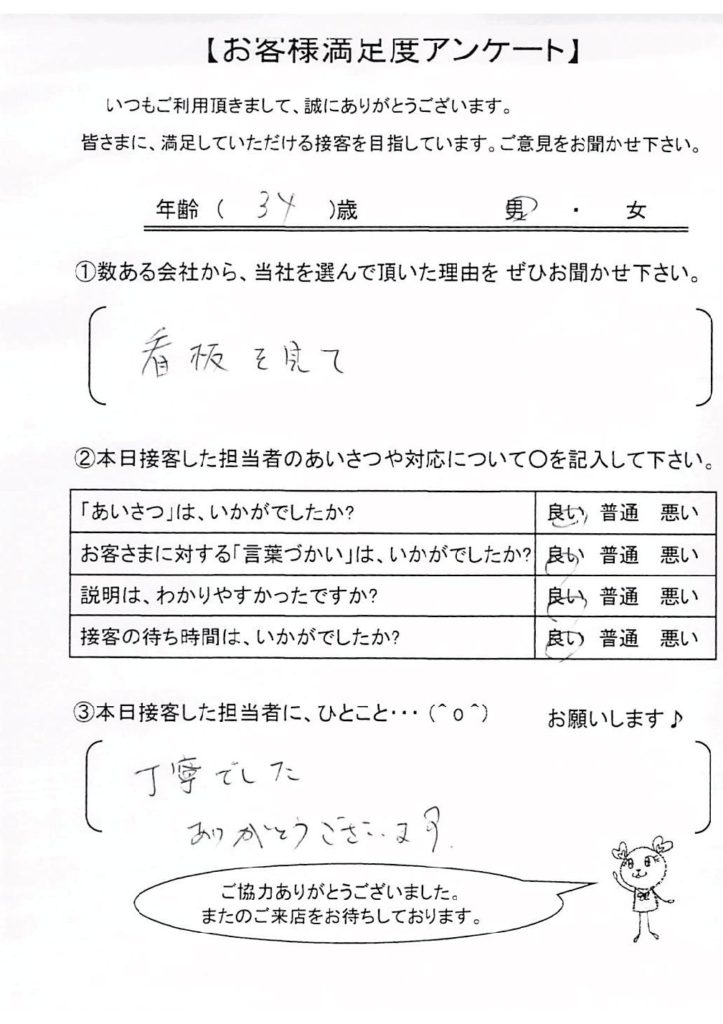 【お客様満足度アンケート】
いつもご利用頂きまして、誠にありがとうございます。
皆さまに、満足していただける接客を目指しています。ご意見をお聞かせ下さい。
年齢 ( 34 )歳 男 ・ 女
①数ある会社から、当社を選んで頂いた理由を ぜひお聞かせ下さい。
看板を見て
②本日接客した担当者のあいさつや対応について〇を記入して下さい。
「あいさつ」は、いかがでしたか? 良い 普通 悪い
お客さまに対する「言葉づかい」は、いかがでしたか? 良い 普通 悪い
説明は、わかりやすかったですか? 良い 普通 悪い
接客の待ち時間は、いかがでしたか? 良い 普通 悪い
③本日接客した担当者に、ひとこと・・・(^o^) お願いします♪
丁寧でした
ありがとうございます.
ご協力ありがとうございました。
またのご来店をお待ちしております。